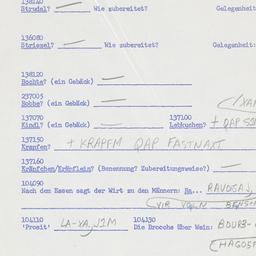 138140
Strudel? — Wie zubereitet? Gelegenheit
136080
Striezel? — Wie zubereitet? Gelegenheit:
138120
Bochte? (ein Gebäck) —
237005
Bobbe? (ein Gebäck) —
137070 137100
Kindl? (ein Gebäck) — Lebkuchen? + QAP
137150
Krapfen? + KRAPFM QAP FASTNAXT
137160
Kräpfchen/Kräpflein? (Benennung? Zubereitungsweise?) —
104090
Nach dem Essen sagt der Wirt zu den Männern: Ra... RAUDSAJ,
104110 104130
'Prosit' LA-XA.JIM Die Broche über Wein: BOURE-